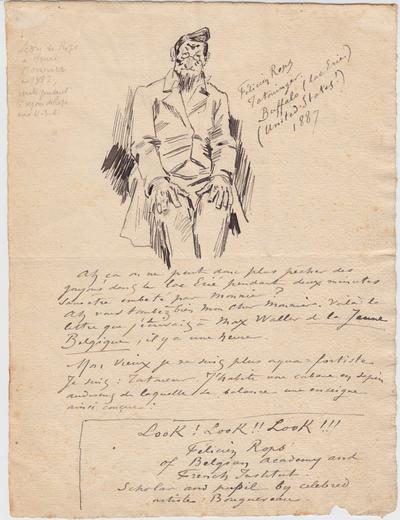 Lettre de Rops
à Henri
Monnier
en 1887,
écrite pendant
aux U.S.A.
Félicien Rops
Tatouager.
Buffalo (lac Erié)
(United-States!)
1887
Ah ça on ne peut donc plus pecher des
goujons dans le lac Erié pendant deux minutes
sans etre embêté par Monnier?
Ah vous tombez bien mon cher Monnier. Voilà la
lettre que j'écrivais à Max Waller de la Jeune
Belgique, il y a une heure.
Mon Vieux je ne suis plus aqua-fortiste
Je suis: Tatoueur J'habite une cabane en sapin
au dessus de laquelle se balance une enseigne
ainsi conçue:
Look! Look!! Look!!!
Félicien Rops
of Belgian Academy and
French Institut.
Scholar and pupil by celebred
artiste: Bouguereau.